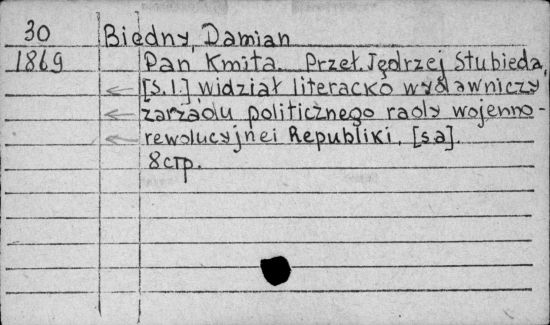 30 Biedny, Damian
1869 Pan Kmita. Przeł. Jędrzej Stubieda,
[S.l.] widział literacko wydawniczy
zarządu politicznego rady wojenno-
rewolucyjnei Republiki, [sa].
8 стр.